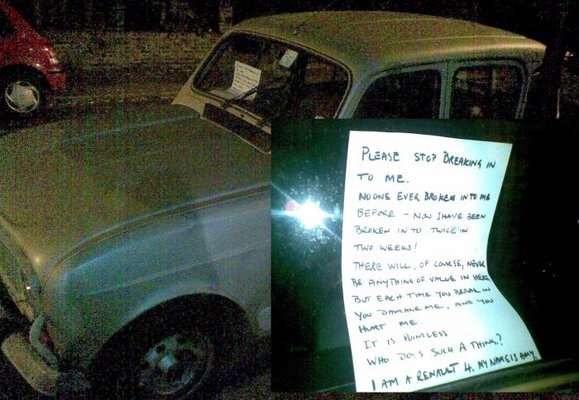 PLEASE STOP BREAKING IN
TO ME.
NO ONE EVER BROKEN INTO ME
BEFORE - NOW I HAVE BEEN
BROKEN IN TO TWICE IN
TWO WEEKS!
THERE WILL, OF COURSE, NEVER
BE ANYTHING OF VALUE IN HERE
BUT EACH TIME YOU BREAK IN
YOU DAMAGE ME, AND YOU
HURT ME.
IT IS POINTLESS
WHO DOES SUCH A THING?
I AM A RENAULT 4. MY NAME IS AMY.